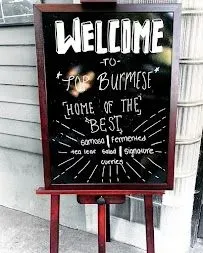 WELCOME
-TO-
"TOP BURMESE"
[HOME OF THE
BEST]
Samosa | fermented
tea leaf Salad | Signature
curries